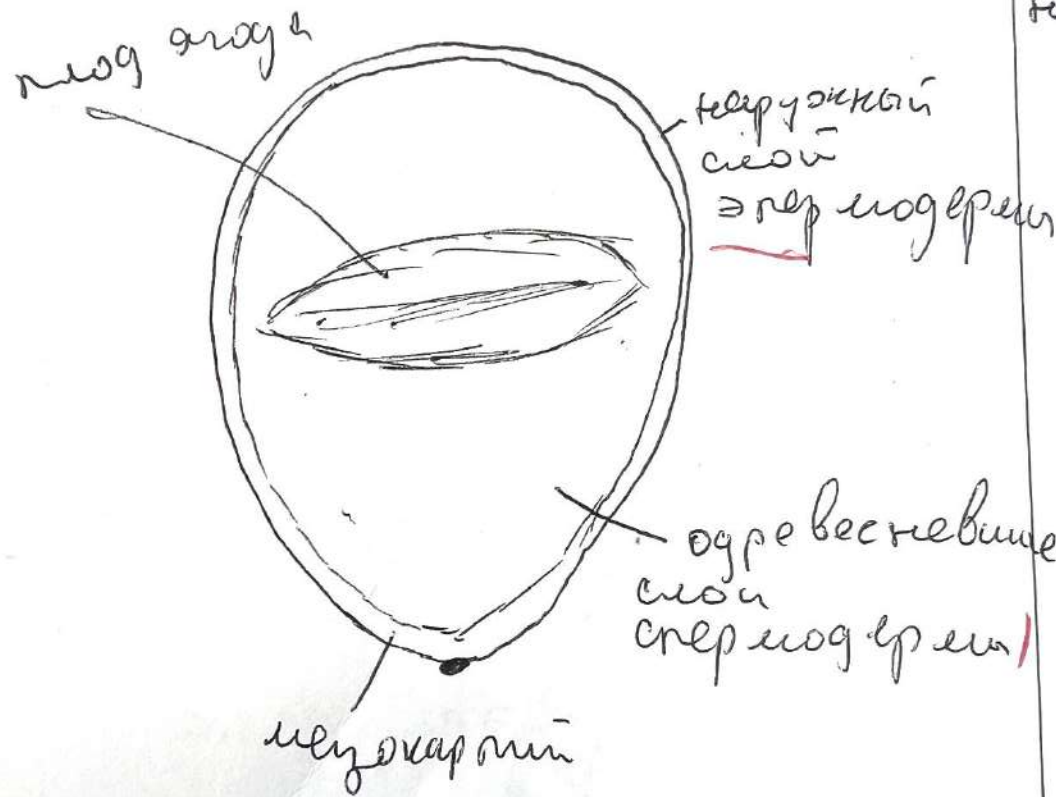 плод ягода
наружный
слой
эпермодермы
одревесневшие
слои
спермодермы
мезокарпий